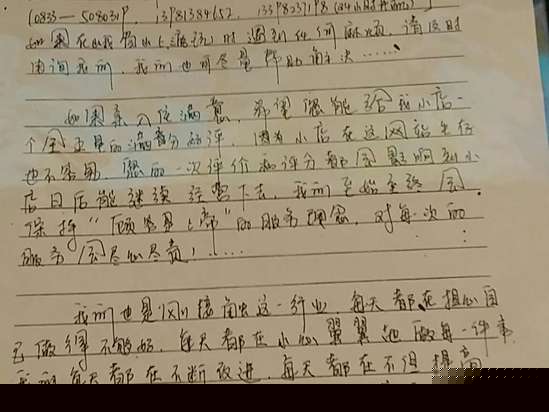 (0833—5080319, 13981384652, 1339 (24小时开机)
如果在峨眉山上游玩时遇到任何麻烦, 请及时
询问我们, 我们也可尽量帮助解决……
如果亲入住满意, 希望您能给我小店一
个全五星的满意分好评, 因为小店在这网站生存
也不容易, 您的一次评价和评分都会影响到小
店日后能继续经营下去, 我们至始至终会
保持“顾客是上帝”的服务理念, 对每一次的
服务会尽心尽责!……
我们也是刚接触这一行业 每天都在担心自
己做得不够好, 每天都在小心翼翼地做每一件事
我们每天都在不断改进, 每天都在不但提高